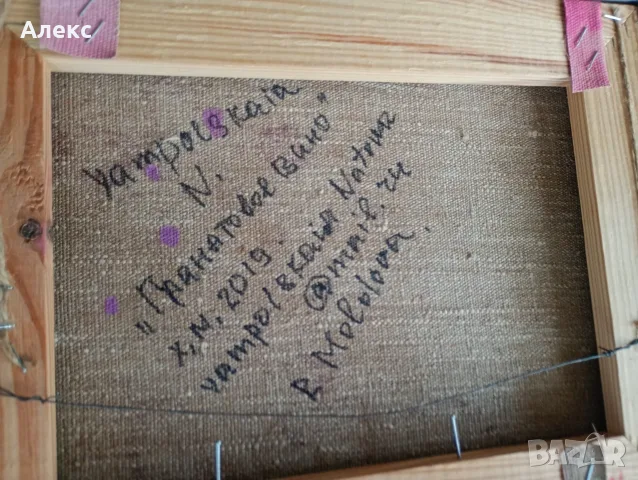 Алекс
Yampolskaia
N.
„Гранатовое вино"
х, м, 2019.
yampolskaia Natoma
@mail.ru
R. Moldova.
BAZAR